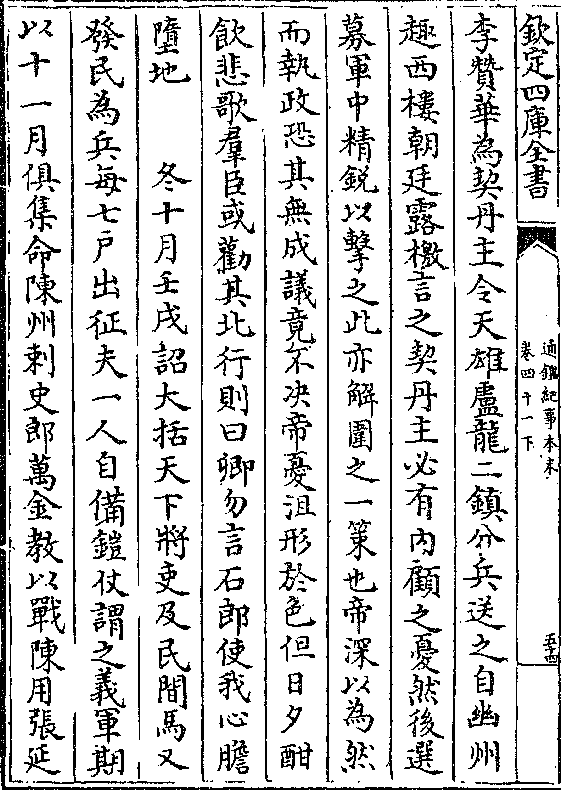 欽定四庫全書
通鑑紀事本末
卷四十一下
五十四
李贊華為契丹主令天雄盧龍二鎮分兵送之自幽州
趣西樓朝廷露檄言之契丹主必有內顧之憂然後選
募軍中精銳以擊之此亦解圍之一策也帝深以為然
而執政恐其無成議竟不決帝憂沮形於色但日夕酣
飲悲歌羣臣或勸其北行則曰卿勿言石郎使我心膽
墮地　冬十月壬戌詔大括天下將吏及民間馬又
發民為兵每七戶出征夫一人自備鎧仗謂之義軍期
以十一月俱集命陳州刺史郎萬金教以戰陳用張延